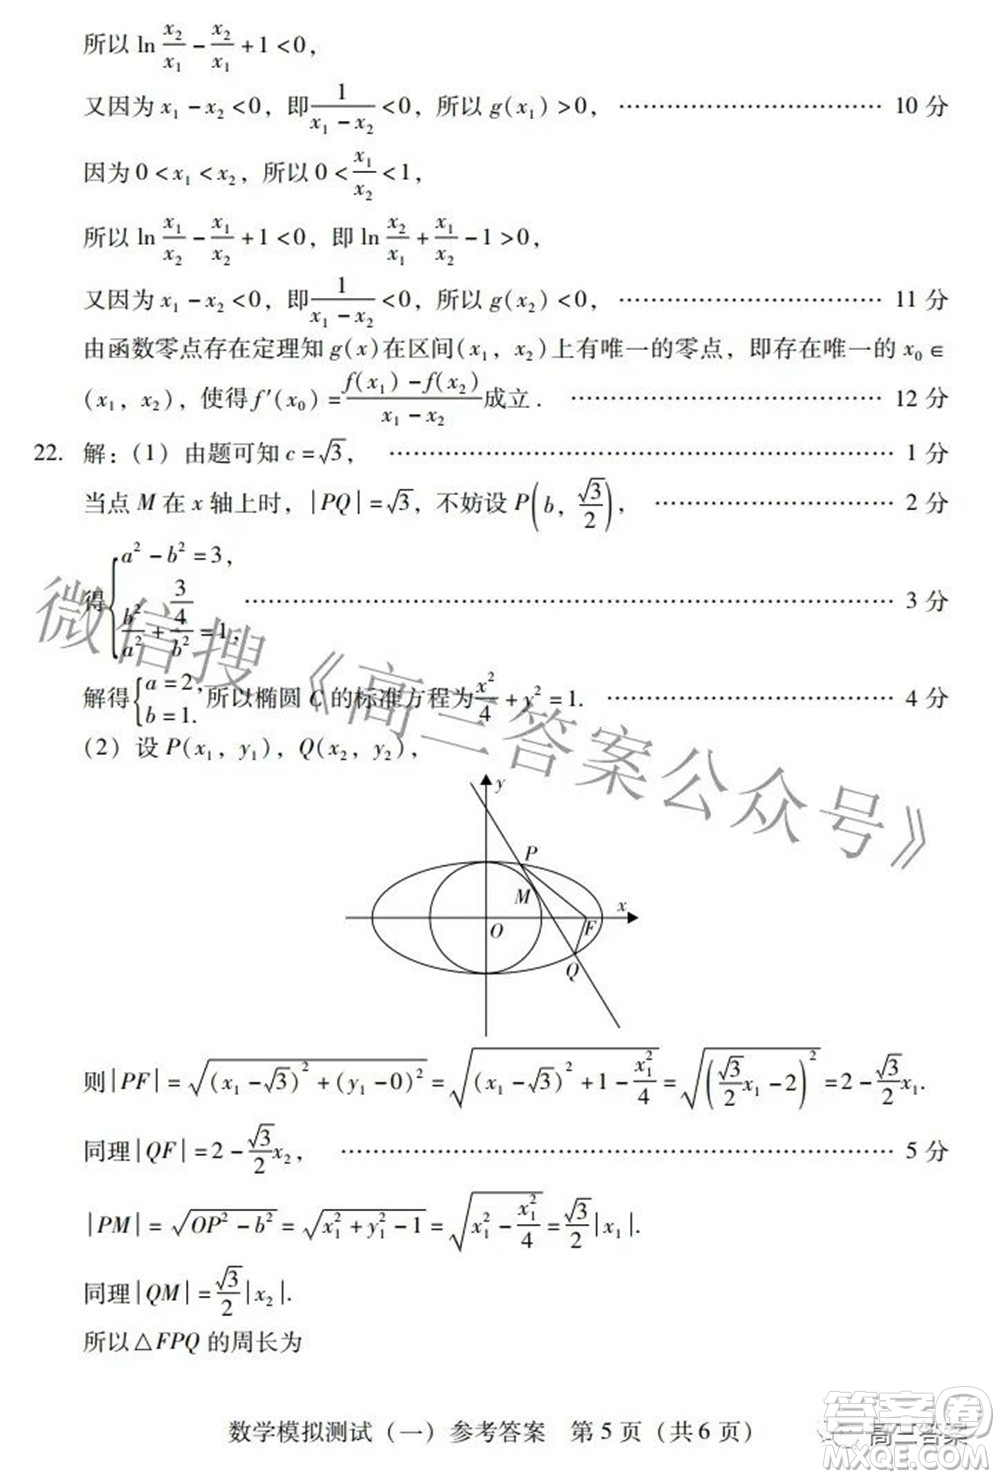 所以 ln x₂/x₁ − x₂/x₁ + 1 < 0,
又因为 x₁ − x₂ < 0, 即 1/(x₁ − x₂) < 0, 所以 g(x₁) > 0, …………………… 10 分
因为 0 < x₁ < x₂, 所以 0 < x₁/x₂ < 1,
所以 ln x₁/x₂ − x₁/x₂ + 1 < 0, 即 ln x₂/x₁ + x₁/x₂ − 1 > 0,
又因为 x₁ − x₂ < 0, 即 1/(x₁ − x₂) < 0, 所以 g(x₂) < 0, …………………… 11 分
由函数零点存在定理知 g(x) 在区间(x₁, x₂)上有唯一的零点, 即存在唯一的 x₀ ∈
(x₁, x₂), 使得 f′(x₀) = (f(x₁) − f(x₂))/(x₁ − x₂) 成立. …………………… 12 分
22. 解: (1) 由题可知 c = √3, …………………… 1 分
当点 M 在 x 轴上时, |PQ| = √3, 不妨设 P(b, √3/2), …………………… 2 分
得{a² − b² = 3,
b²/a² + (3/4)/b² = 1, …………………… 3 分
解得{a = 2, b = 1. 所以椭圆 C 的标准方程为 x²/4 + y² = 1. …………………… 4 分
(2) 设 P(x₁, y₁), Q(x₂, y₂),
y
P
M
x
O
F
Q
则|PF| = √((x₁ − √3)² + (y₁ − 0)²) = √((x₁ − √3)² + 1 − x₁²/4) = √((√3/2 x₁ − 2)²) = 2 − √3/2 x₁.
同理|QF| = 2 − √3/2 x₂, …………………… 5 分
|PM| = √(OP² − b²) = √(x₁² + y₁² − 1) = √(x₁² − x₁²/4) = √3/2 |x₁|.
同理|QM| = √3/2 |x₂|.
所以△FPQ 的周长为
数学模拟测试（一）参考答案 第 5 页（共 6 页）
微信搜《高三答案公众号》
高三答案
答案圈
MXQE.COM